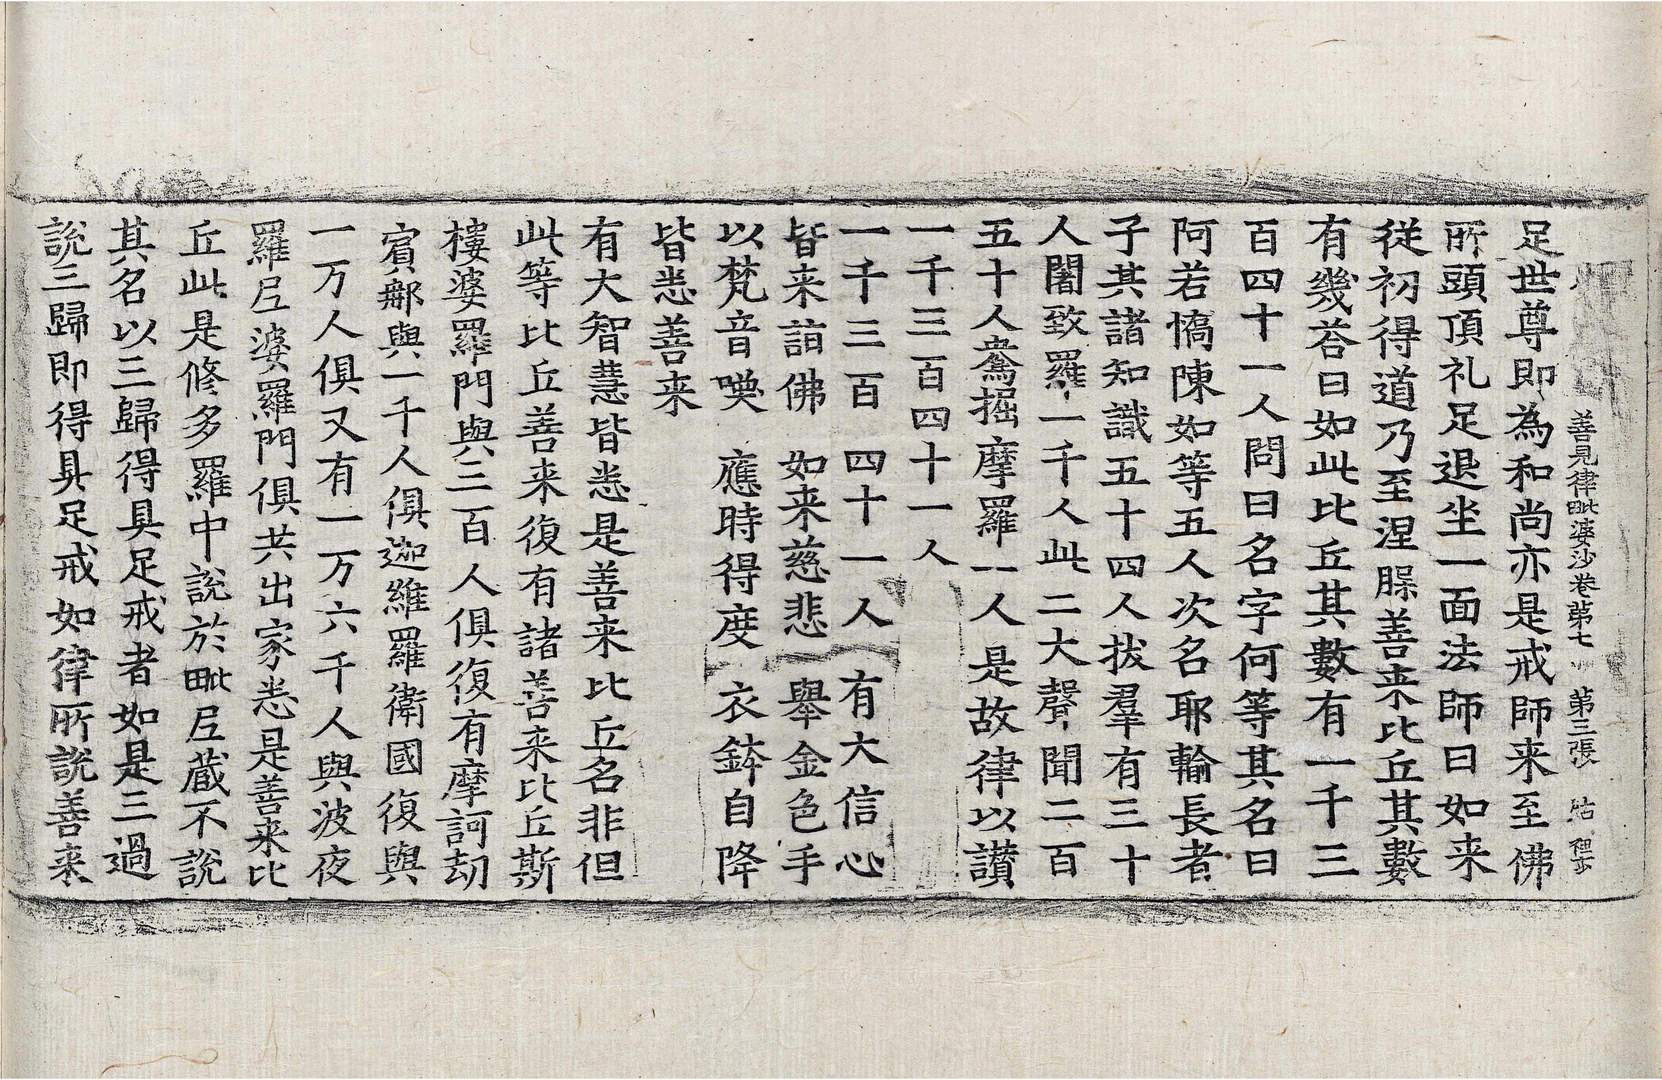 善見律毗婆沙卷第七 第三張
足世尊即為和尚亦是戒師来至佛
所頭頂礼足退坐一面法師曰如来
従初得道乃至涅臈善来比丘其數
有幾荅曰如此比丘其數有一千三
百四十一人問曰名字何等其名曰
阿若憍陳如等五人次名耶輪長者
子其諸知識五十四人拔羣有三十
人闍致羅一千人此二大聲聞二百
五十人鴦掘摩羅一人是故律以讃
一千三百四十一人
一千三百四十一人 有大信心
皆来詣佛 如来慈悲 舉金色手
以梵音喚 應時得度 衣鉢自降
皆悉善来
有大智慧皆悉是善来比丘名非但
此等比丘善来復有諸善来比丘斯
樓婆羅門與三百人俱復有摩訶劫
賔䣝與一千人俱迦維羅衛國復與
一万人俱又有一万六千人與波夜
羅𡰱婆羅門俱共出家悉是善来比
丘此是修多羅中說於毗𡰱蔵不說
其名以三歸得具足戒者如是三過
說三歸即得具足戒如律所說善来